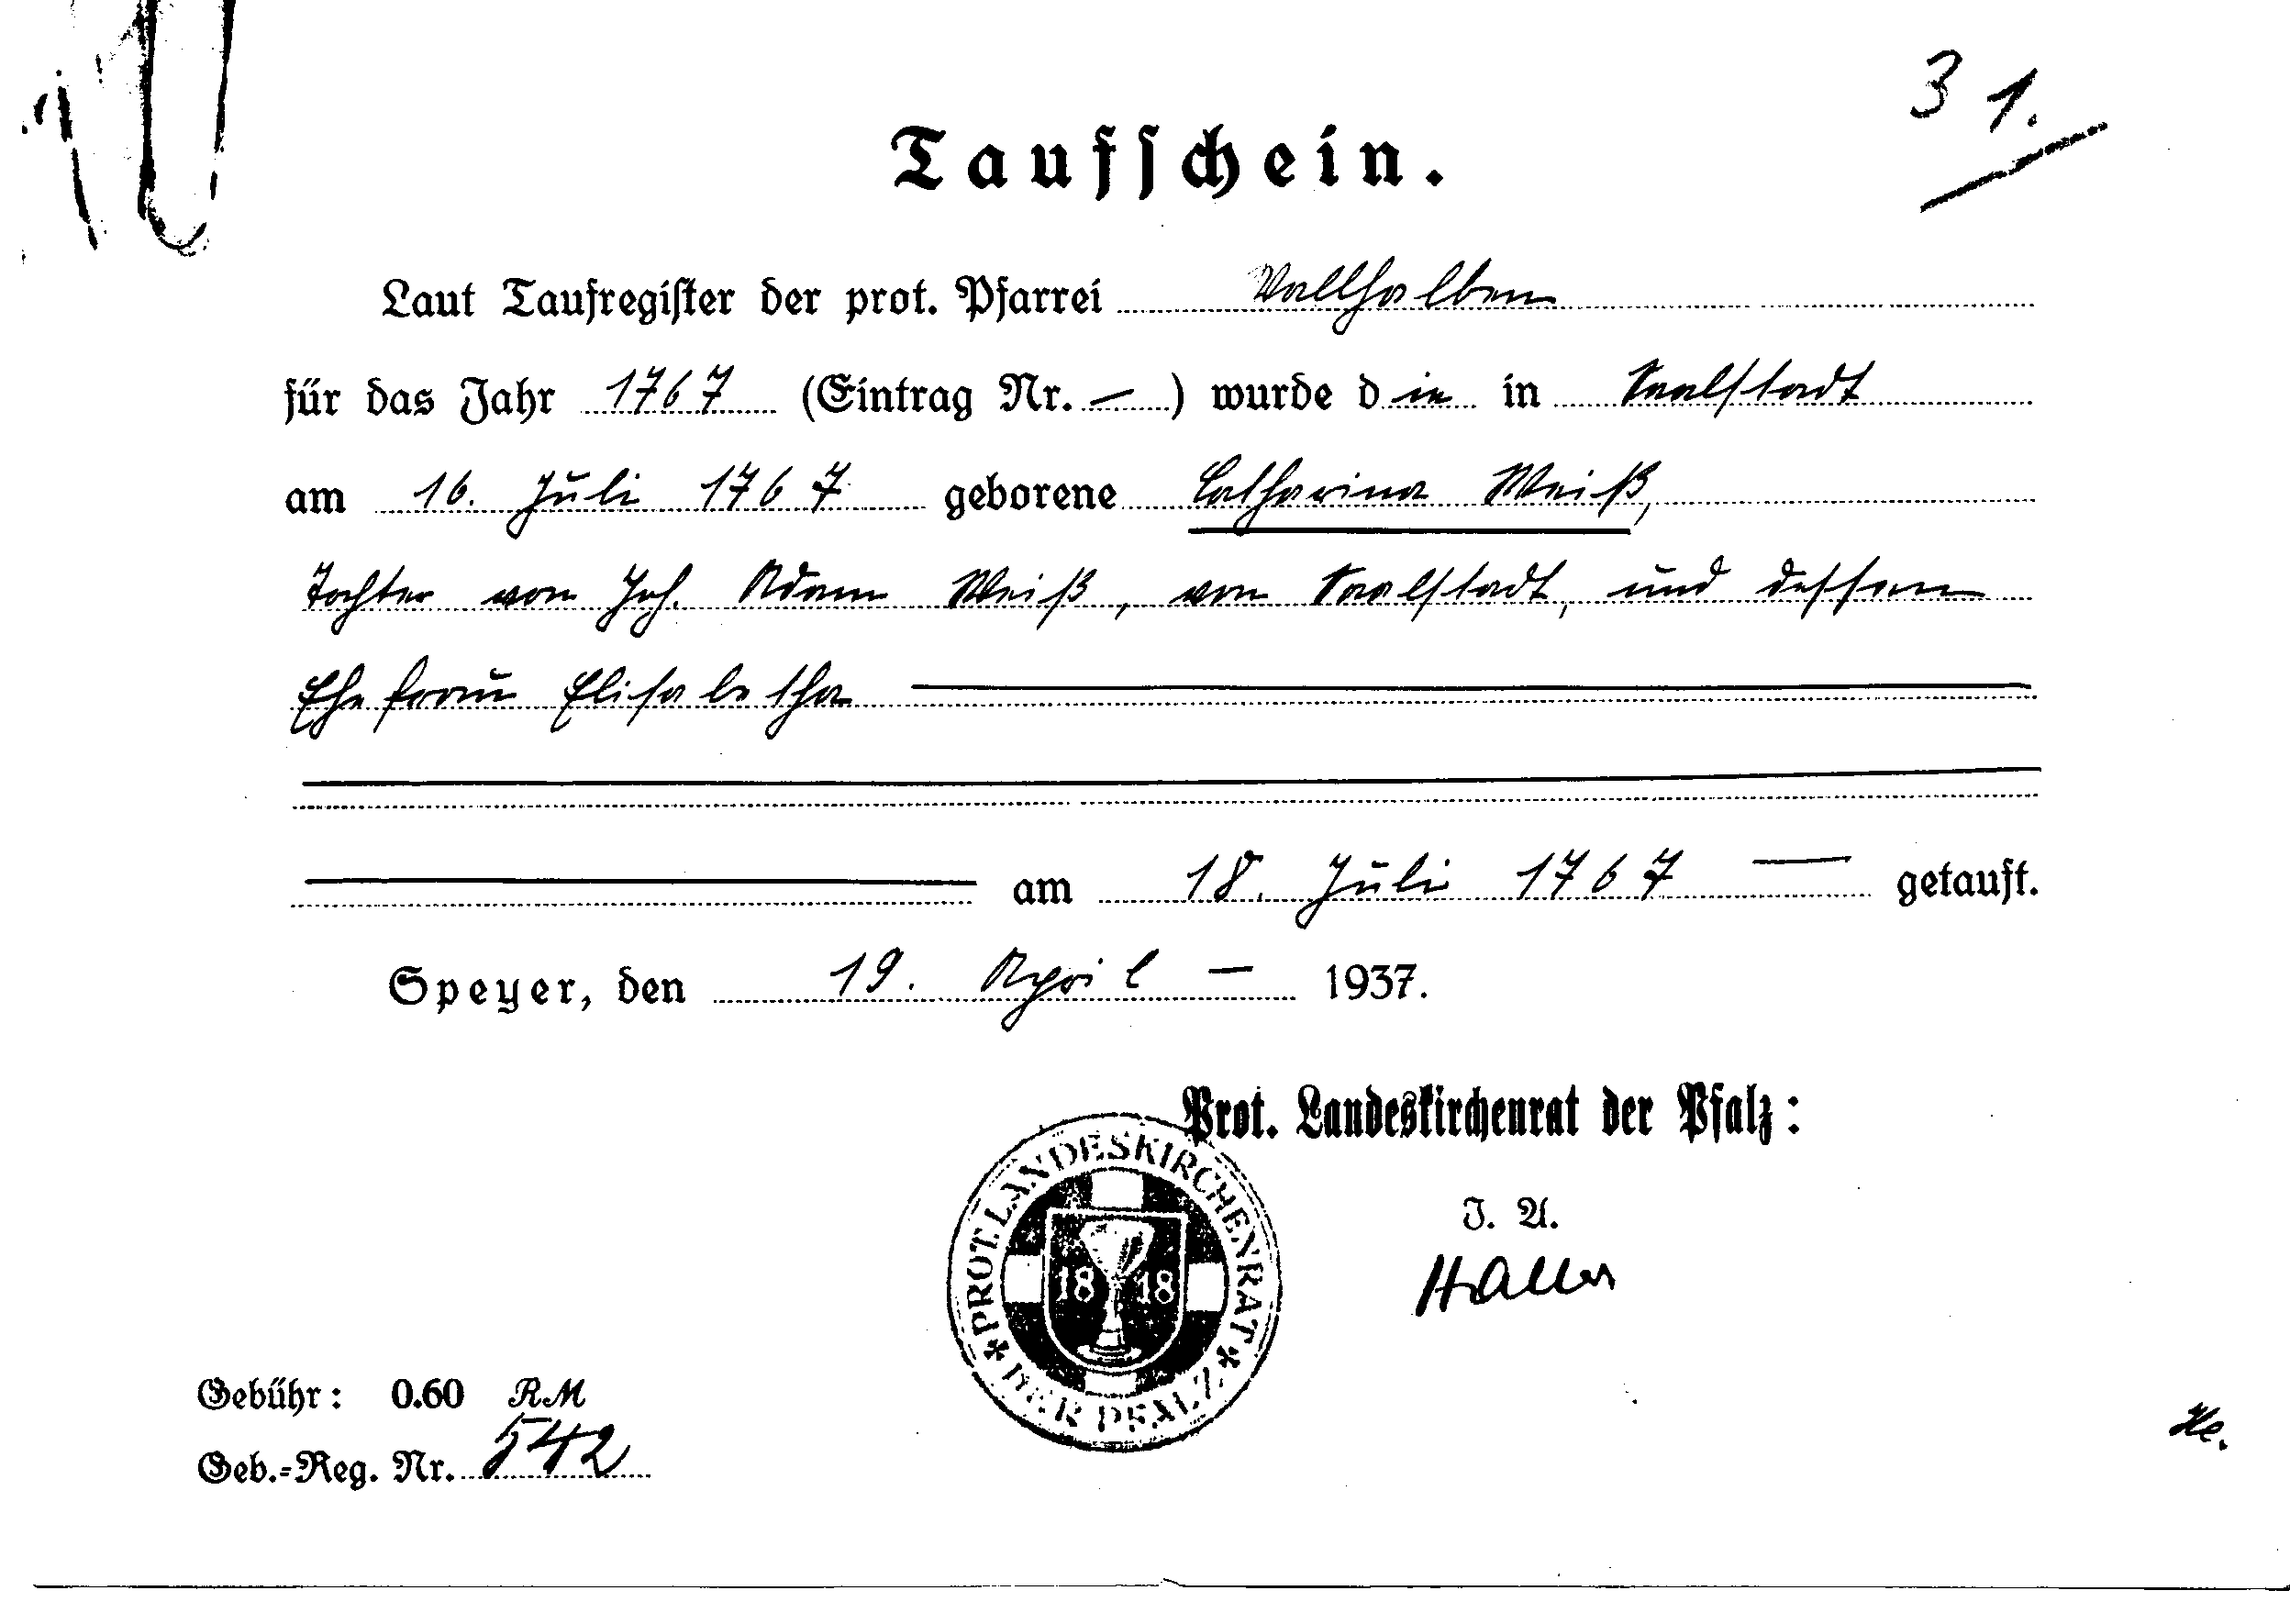 31.
Taufschein.
Laut Taufregister der prot. Pfarrei Wallhalben
für das Jahr 1767 (Eintrag Nr. — ) wurde die in Saalstadt
am 16. Juli 1767 geborene Catharina Weiß,
Tochter von Joh. Adam Weiß, von Saalstadt, und dessen
Ehefrau Elisabetha
am 18. Juli 1767 — getauft.
Speyer, den 19. April — 1937.
Prot. Landeskirchenrat der Pfalz:
PROT. LANDESKIRCHENRAT
18 18
DER PFALZ
J. A.
Gebühr: 0.60 RM
Geb.-Reg. Nr. 542